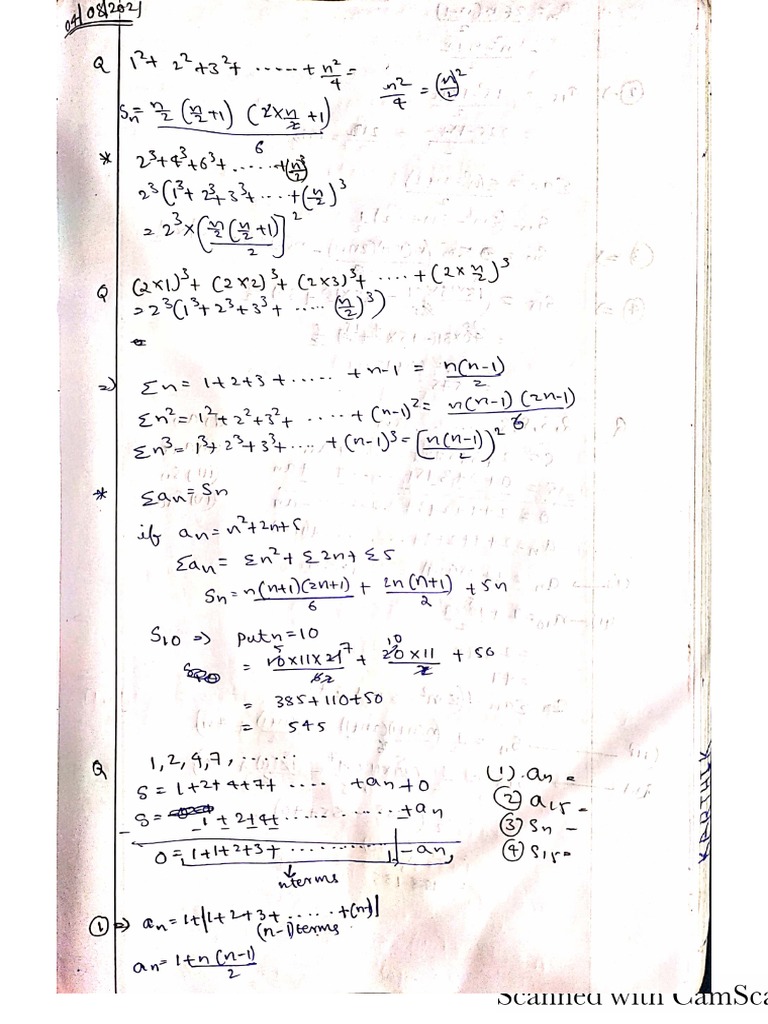 04/08/2021
Q 1²+ 2²+3²+ ...... + n²/4 =
n²/4 = (n/2)²
Sn = n/2 (n/2 +1) (2×n/2 +1) / 6
* 2³+4³+6³+ ...... +(n/2)³
2³(1³+2³+3³+ ...+(n/2)³
= 2³×[n/2(n/2+1)/2]²
Q (2×1)³+ (2×2)³+ (2×3)³+ .... + (2×n/2)³
= 2³(1³+2³+3³+ ..... (n/2)³)
=) Σn = 1+2+3+ ...... +n-1 = n(n-1)/2
Σn² = 1²+2²+3²+ ..... + (n-1)² = n(n-1)(2n-1)/6
Σn³ = 1³+2³+3³+ .... + (n-1)³ = (n(n-1)/2)²
* Σan = Sn
if an = n²+2n+5
Σan = Σn²+ Σ2n+ Σ5
Sn = n(n+1)(2n+1)/6 + 2n(n+1)/2 + 5n
S10 => put n=10
= 10×11×21/6 + 20×11/2 + 50
= 385+110+50
= 545
Q 1,2,4,7, ......
S = 1+2+4+7+ ..... +an+0
S = 1+2+4+ .......... +an
0 = 1+1+2+3+ ............ - an
n terms
(1) an =
(2) a15 =
(3) Sn -
(4) S15 =
(1) => an = 1+[1+2+3+ ...... +(n-1)]
(n-1) terms
an = 1+n(n-1)/2
KARTHIK
Scanned with CamSca